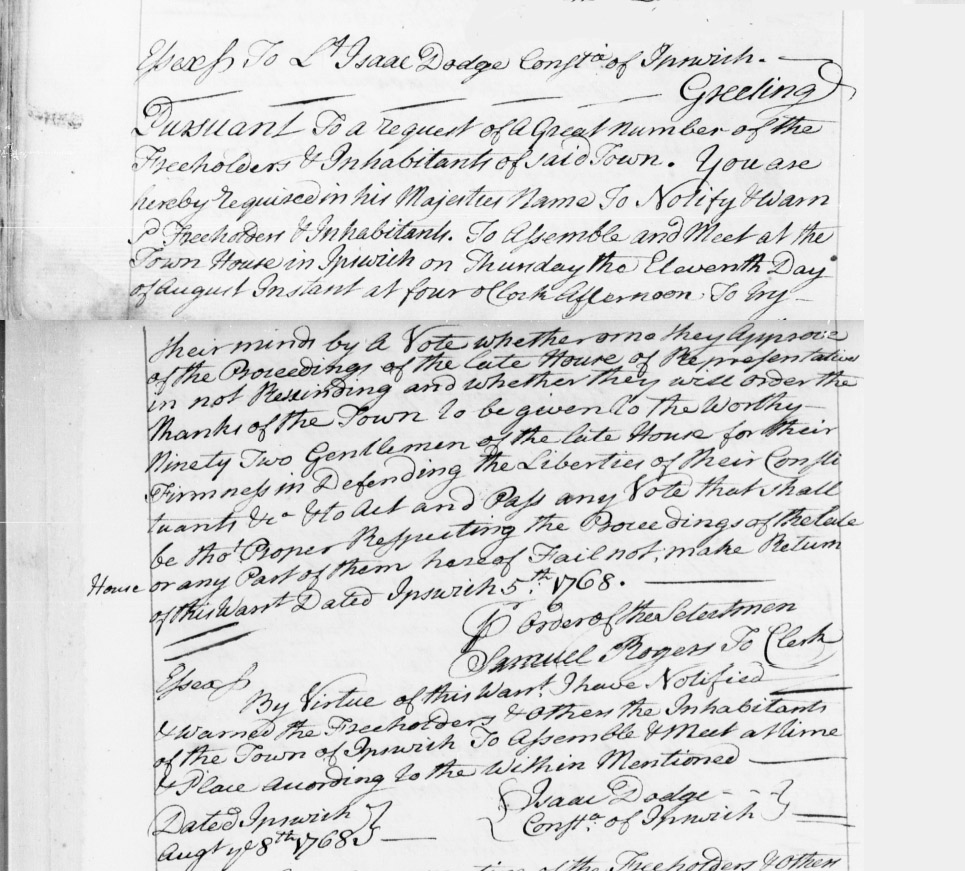 Essex ss To Lt Isaac Dodge Consta of Ipswich. —
Greeting
Pursuant To a request of a Great number of the
Freeholders & Inhabitants of said Town. You are
hereby required in his Majesties Name To Notify & Warn
sd Freeholders & Inhabitants. To Assemble and Meet at the
Town House in Ipswich on Thursday the Eleventh Day
of August Instant at four oClock Afternoon, To try
their minds by a Vote whether or no they Approve
of the Proceedings of the late House of Representatives
in not Resinding and whether they will order the
thanks of the Town to be given to the Worthy
Ninety Two Gentlemen of the late House for their
Firmness in Defending the Liberties of their Consti
tuants &ca & to Act and Pass any Vote that shall
be thot Proper Respecting the Proceedings of the late
House or any Part of them hereof Fail not, make Return
of this Warrt Dated Ipswich 5th 1768. —
Pr order of the Selectmen
Samuel Rogers To Clerk
Essex ss
By Virtue of this Warrt. I have Notified
& warned the Freeholders & others the Inhabitants
of the Town of Ipswich To Assemble & Meet at time
& Place acording to the Within Mentioned —
Dated Ipswich
Augt ye 8th 1768
Isaac Dodge
Consta of Ipswich
of the Freeholders & others